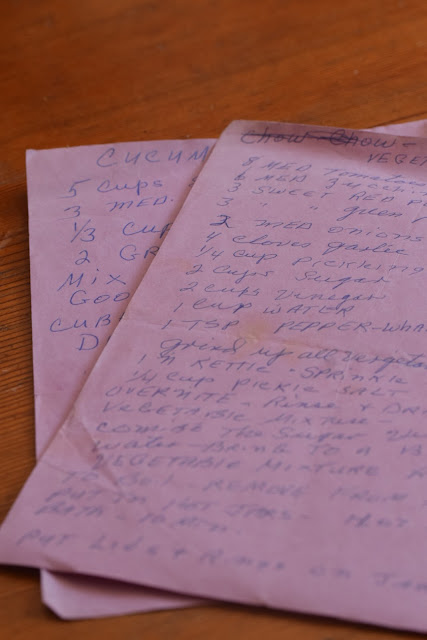 CUCUM
5 CUPS
3 MED.
1/3 CUP
2 GR
MIX
GOO
CUB
D
Chow Chow -
VEGET
8 MED Tomatoes
6 MED Zucchi
3 SWEET RED P
3 " " green
2 MED ONIONS
4 Cloves garlic
1/4 CUP PICKLING
2 Cups Sugar
2 CUPS Vinegar
1 CUP WATER
1 TSP PEPPER-WHO
Grind up all vegeta
IN KETTLE - SPRINKLE
1/4 CUP PICKLE SALT
OVERNITE - Rinse + DRA
VEGETABLE MIXTURE -
COMBINE THE Sugar Vin
WATER - BRING TO A B
VEGETABLE MIXTURE
TO BOIL - REMOVE FROM
PUT IN HOT JARS - HOT
BATH 10 MIN.
PUT Lids + Rings on Jar